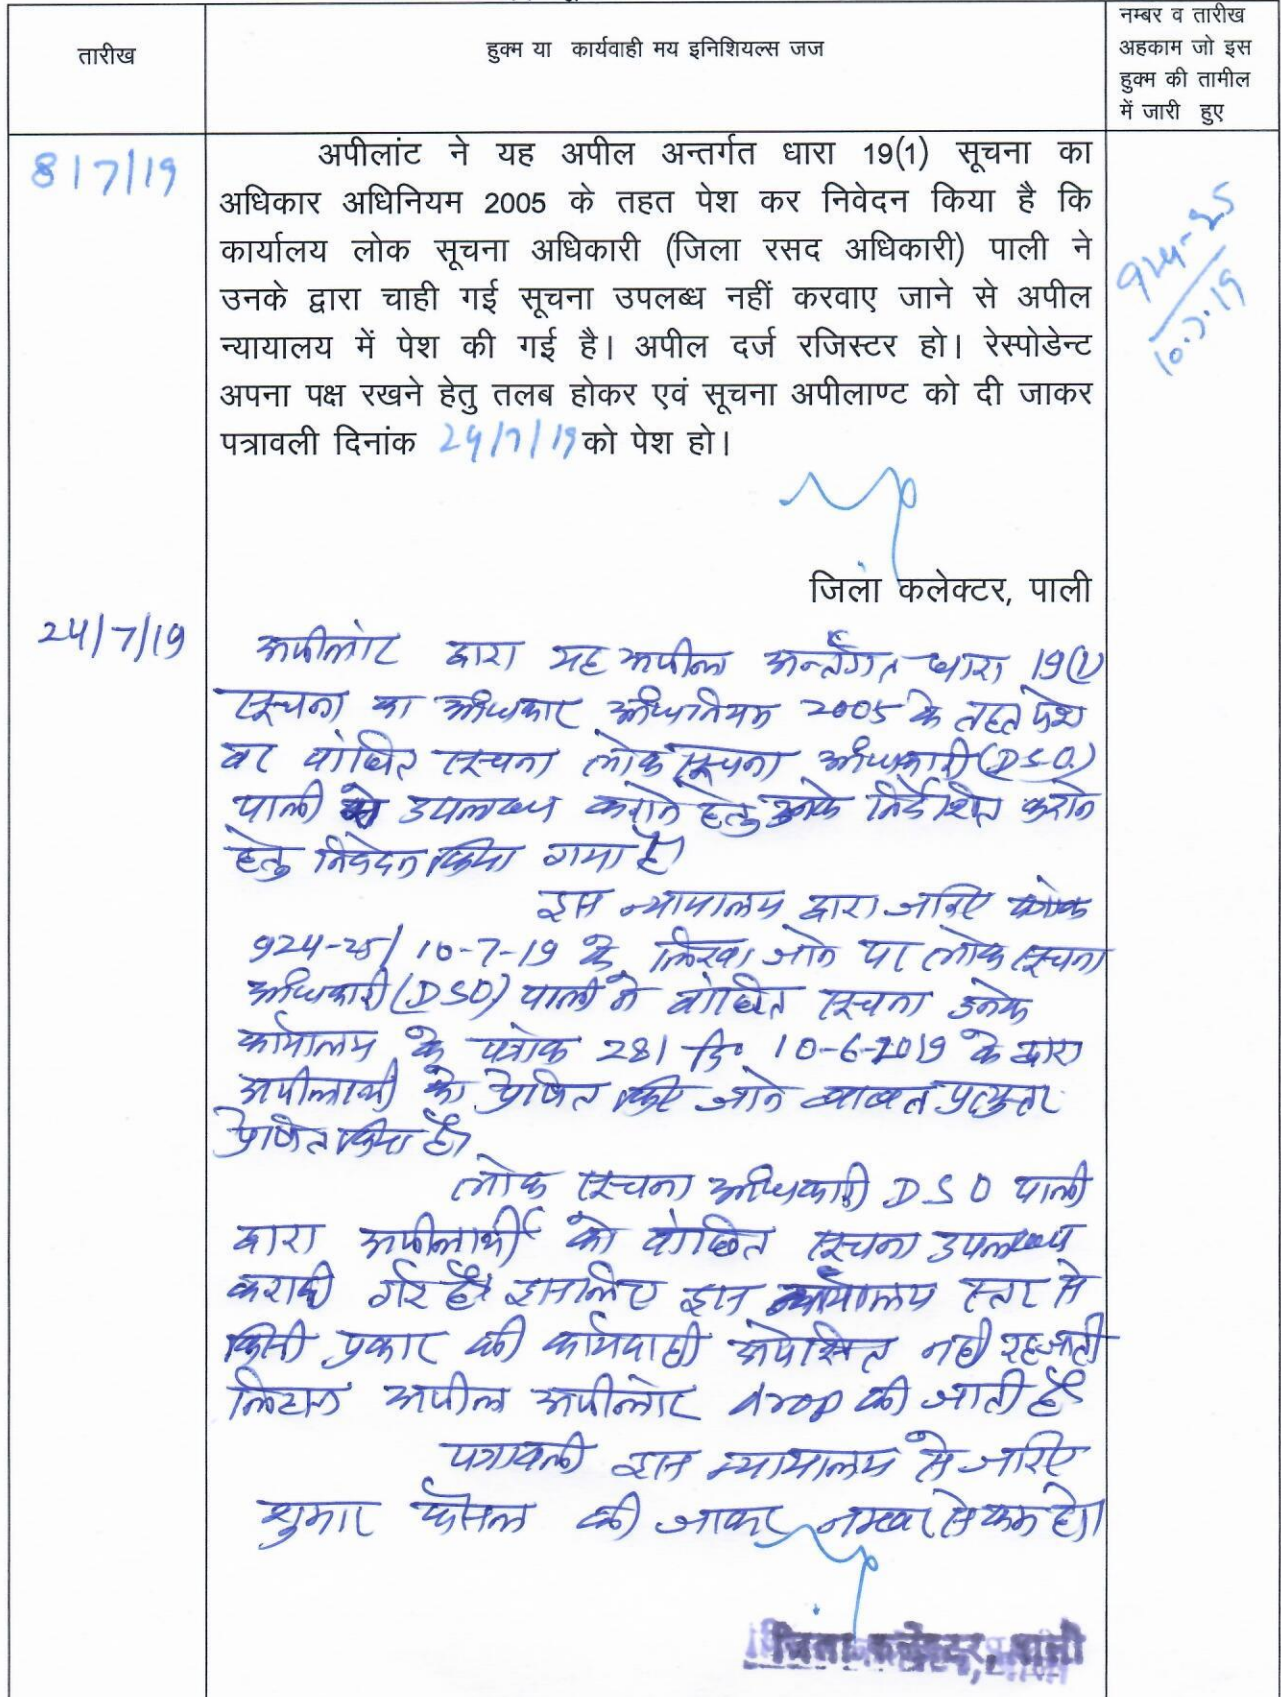 तारीख
हुक्म या कार्यवाही मय इनिशियल्स जज
नम्बर व तारीख
अहकाम जो इस
हुक्म की तामील
में जारी हुए
8/7/19
अपीलांट ने यह अपील अन्तर्गत धारा 19(1) सूचना का
अधिकार अधिनियम 2005 के तहत पेश कर निवेदन किया है कि
कार्यालय लोक सूचना अधिकारी (जिला रसद अधिकारी) पाली ने
उनके द्वारा चाही गई सूचना उपलब्ध नहीं करवाए जाने से अपील
न्यायालय में पेश की गई है। अपील दर्ज रजिस्टर हो। रेस्पोडेन्ट
अपना पक्ष रखने हेतु तलब होकर एवं सूचना अपीलाण्ट को दी जाकर
पत्रावली दिनांक 24/7/19 को पेश हो।
924-25
10.7.19
जिला कलेक्टर, पाली
24/7/19
अपीलांट द्वारा यह अपील अन्तर्गत धारा 19(1)
सूचना का अधिकार अधिनियम 2005 के तहत पेश
कर वांछित सूचना लोक सूचना अधिकारी (DSO)
पाली से उपलब्ध कराने हेतु उनके निर्देशित कराने
हेतु निवेदन किया गया है।
इस न्यायालय द्वारा जरिए
924-25/10-7-19 के लिखा जाने पर लोक सूचना
अधिकारी (DSO) पाली ने वांछित सूचना उनके
कार्यालय के पत्रांक 281 दि० 10-6-2019 के द्वारा
अपीलार्थी को प्रेषित किए जाने बाबत प्रत्युत्तर
प्रेषित किया है।
लोक सूचना अधिकारी DSO पाली
द्वारा अपीलार्थी को वांछित सूचना उपलब्ध
करादी गई है। इसलिए इस न्यायालय स्तर से
किसी प्रकार की कार्यवाही अपेक्षित नहीं रह जाती
लिहाजा अपील अपीलांट drop की जाती है
पत्रावली इस न्यायालय से जरिए
शुमार फैसल की जाकर नम्बर से कम हो।
जिला कलेक्टर, पाली